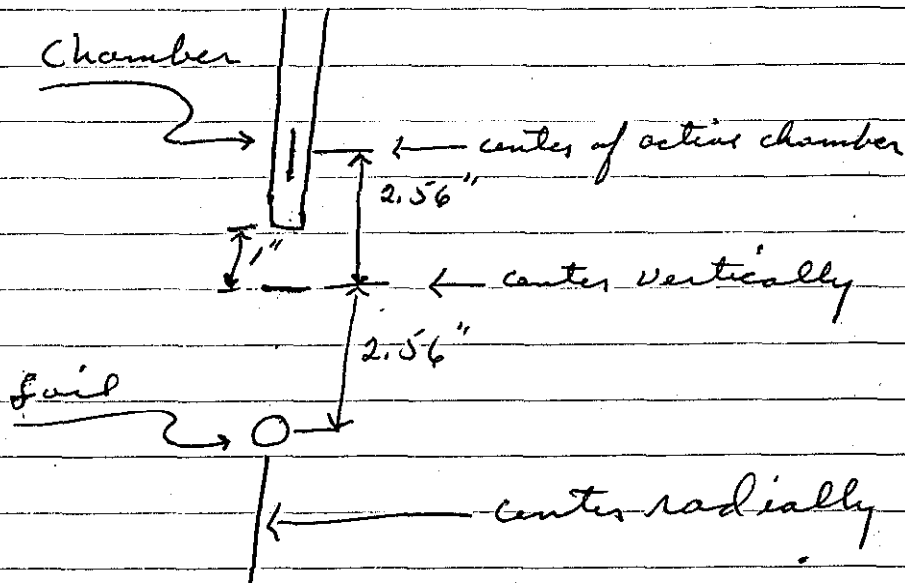 Chamber
← center of active chamber
2.56"
1"
← center vertically
2.56"
foil
← center radially